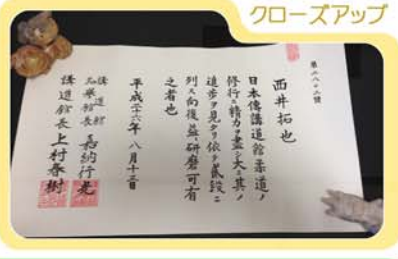 クローズアップ
第二八〇二號
西井拓也
日本傳講道館柔道ノ
修行ニ精力ヲ盡シ大ニ其ノ
進歩ヲ見タリ依テ貳段ニ
列ス向後益研磨可有
之者也
平成二十六年八月十三日
講道館
名譽館長 嘉納行光
講道館長 上村春樹